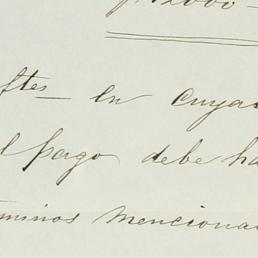 ftes en cuya
l pago debe ha
minos menciona